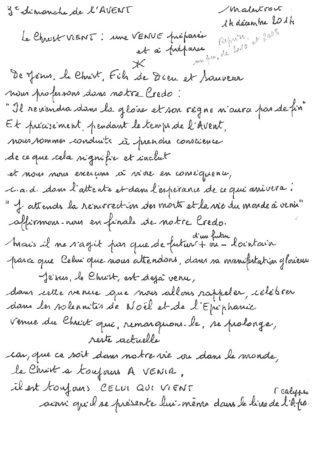 3e dimanche de l'AVENT
Malestroit
14 décembre 2014
Le Christ VIENT : une VENUE préparée
et à préparer
Reprise
de 2010 et 2008
De Jésus, le Christ, Fils de Dieu et Sauveur
nous professons dans notre Credo :
"Il reviendra dans la gloire et son règne n'aura pas de fin"
Et précisément, pendant le temps de l'Avent,
nous sommes conduits à prendre conscience
de ce que cela signifie et inclut
et nous nous exerçons à vivre en conséquence,
c.a.d. dans l'attente et dans l'espérance de ce qui arrivera :
"J'attends la résurrection des morts et la vie du monde à venir"
affirmons-nous en finale de notre Credo.
Mais il ne s'agit pas que de futur, d'un futur + ou - lointain
parce que Celui que nous attendons, dans sa manifestation glorieuse
Jésus, le Christ, est déjà venu,
dans cette venue que nous allons rappeler, célébrer
dans les solennités de Noël et de l'Epiphanie
venue du Christ qui, remarquons-le, se prolonge,
reste actuelle
car, que ce soit dans notre vie ou dans le monde,
le Christ a toujours A VENIR,
il est toujours CELUI QUI VIENT
ainsi qu'il se présente lui-même dans le livre de l'Apocalypse